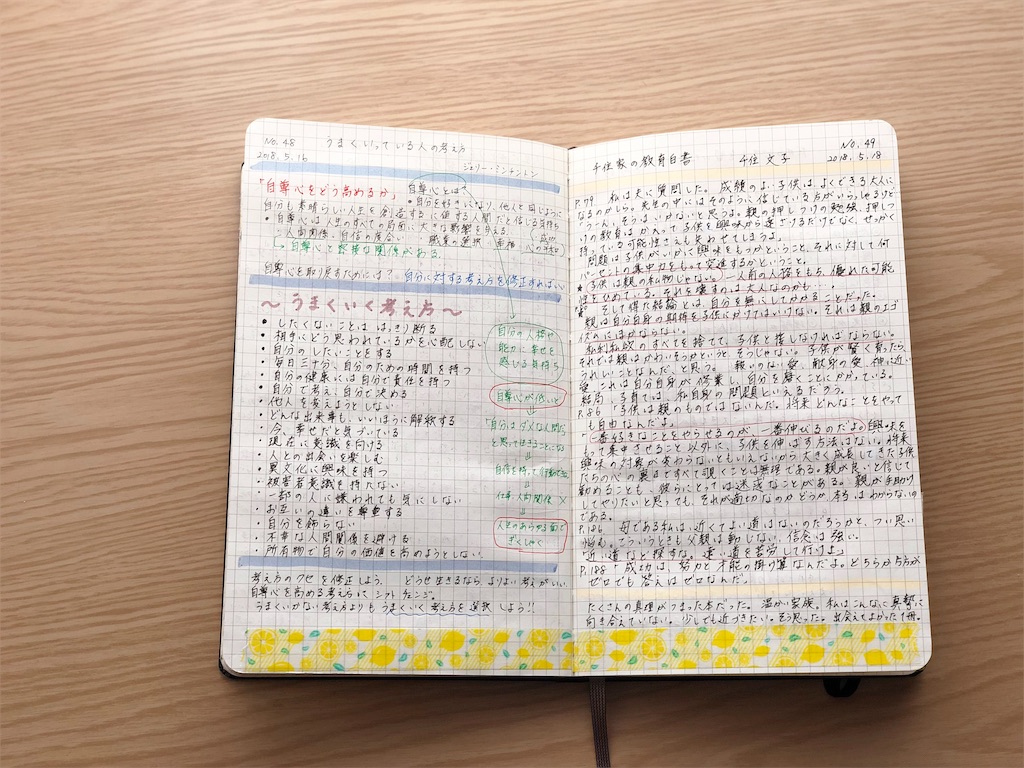 No. 48 うまくいっている人の考え方
2018. 5. 16
ジェリー・ミンチントン
「自尊心をどう高めるか」 自尊心とは?
自分を好きになり、他人と同じように
自分も素晴らしい人生を創造するに値する人間だと信じる気持ち
自尊心は人生のすべての局面に大きな影響を与える。
人間関係、自信の度合い、職業の選択、幸福、心の平和
自尊心と密接な関係がある。
自尊心を取り戻すためには? 自分に対する考え方を修正すればいい
~ うまくいく考え方 ~
• したくないことは はっきり断る
• 相手にどう思われているかを心配しない
• 自分のしたいことをする
• 毎日三十分、自分のための時間を持つ
• 自分の健康には自分で責任を持つ
• 自分で考え、自分で決める
• 他人を変えようとしない
• どんな出来事も、いいように解釈する
• 今、幸せだと気づいている
• 現在に意識を向ける
• 人との出会いを楽しむ
• 異文化に興味を持つ
• 被害者意識を持たない
• 一部の人に嫌われても気にしない
• お互いの違いを尊重する
• 自分を飾らない
• 不幸な人間関係を避ける
• 所有物で自分の価値を高めようとしない
自分の人格や
能力に幸せを
感じる気持ち
自尊心が低いと
⇓
「自分はダメな人間だ」
と思って生きることになる
⇓
自信を持って行動
⇓
仕事・人間関係 ×
⇓
人生のあらゆる面で
ぎくしゃく
考え方のクセを修正しよう。 どうせ生きるなら よりよい考えがいい
自尊心を高める考え方に シフトチェンジ。
うまくいかない考え方よりも うまくいく考え方を選択しよう!!
No. 49
千住家の教育白書 千住 文子 2018. 5. 18
P.79 私は夫に質問した。成績のよい子供は、よくできる大人に
なるのかしら。先生の中にはそのように信じている方がいらっしゃるけど
うーん、そうはいかないと思うよ。親の押しつけの勉強、押しつ
けの教育はかえって子供を興味から遠ざけるだけでなく、せっかく
持っている可能性さえも失わせてしまうよ。
問題は子供がいかに興味をもつかということ、それに対して何
パーセントの集中力をもって突進するかということ。
★ 子供は親の私物じゃない。一人前の人格をもち、優れた可能
性をひめている。それを壊すのは大人なのかも…。
★ そして得た結論とは、自分を無にしてかかることだった。
親は自分自身の期待を子供にかけてはいけない。それは親のエゴ
以外のなにものでもない。
私利私欲のすべてを捨てて、子供と接しなければならない。
それでは親はかわいそうかというと、そうじゃない。子供が賢く育ったら、
うれしいことなんだ、と思う。 報いのない愛、献身の愛、神に近い
愛、これは自分自身が修業し、自分を磨くことにかかっている。
結局、子育ては、私自身の問題といえるだろう。
P.86 「子供は親のものではないんだ。将来どんなことをやって
も自由なんだよ。」
「一番好きなことをやらせるのが、一番伸びるのだよ。」興味を
もって集中させること以外に、子供を伸ばす方法はない。将来
興味の対象が変わらないともいえないから大きく成長してきた子供
たちの心の裏まですべて覗くことは無理である。親が良いと信じて
勧めることも、彼らにとっては迷惑なことがある。 親が手助け
してやりたいと思っても、それが適切なのかどうか本当はわからないの
である。
P.146 母である私は、近くてよい道はないのだろうかと、つい思い
悩む。こういうときも父親は動じない。信念は強い。
「近い道など探すな。遠い道を苦労して行けよ」
P.188 「成功は、努力と才能の掛け算なんだよ。どちらか片方が
ゼロでも答えはゼロなんだ。」
たくさんの真理がつまった本だった。温かい家族。私はこんなに真摯に
向き合えていない。少しでも近づきたい。そう思った。出会えてよかった1冊。